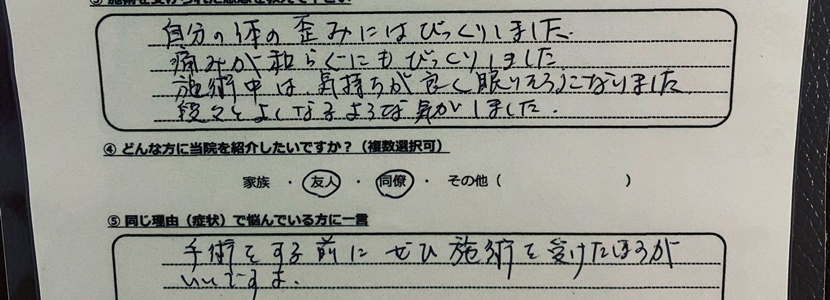 ③ 施術を受けられた感想を教えて下さい
自分の体の歪みにはびっくりしました.
痛みが和らぐにもびっくりしました.
施術中は、気持ちが良く眠りそうになりました
段々とよくなるような気がしました.
④ どんな方に当院を紹介したいですか？（複数選択可）
家族 ・ 友人 ・ 同僚 ・ その他（ ）
⑤ 同じ理由（症状）で悩んでいる方に一言
手術をする前にぜひ施術を受けたほうが
いいですよ.